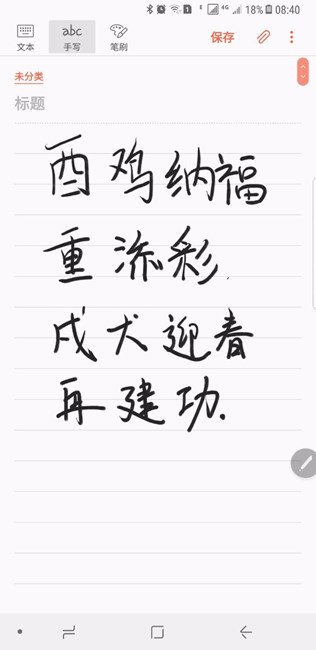 18% 08:40
abc
文本 手写 笔刷 保存
未分类
标题
酉鸡纳福
重添彩.
戌犬迎春
再建功.